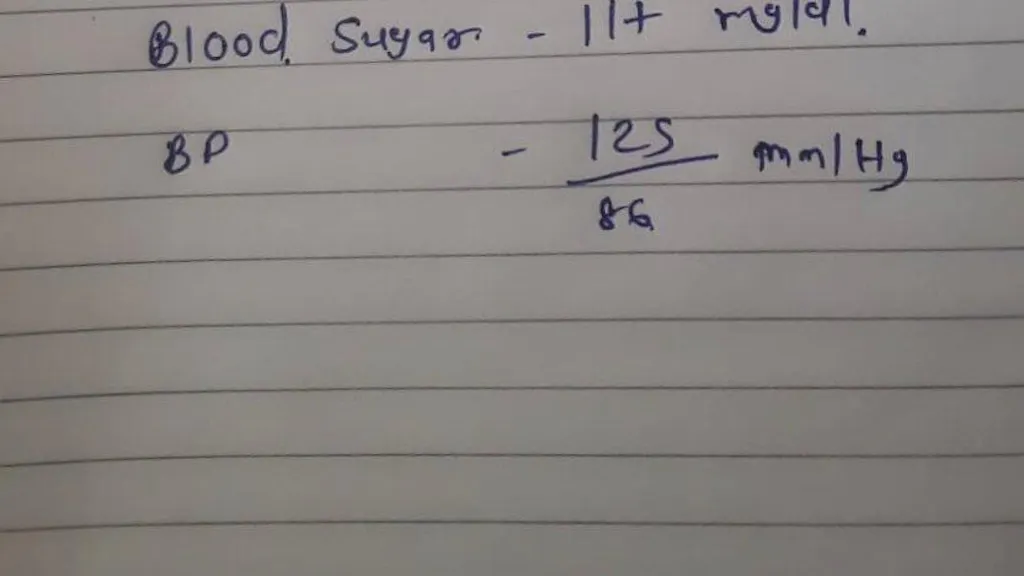 Blood Sugar - 117 mg/dl.
BP - 125/86 mm/Hg